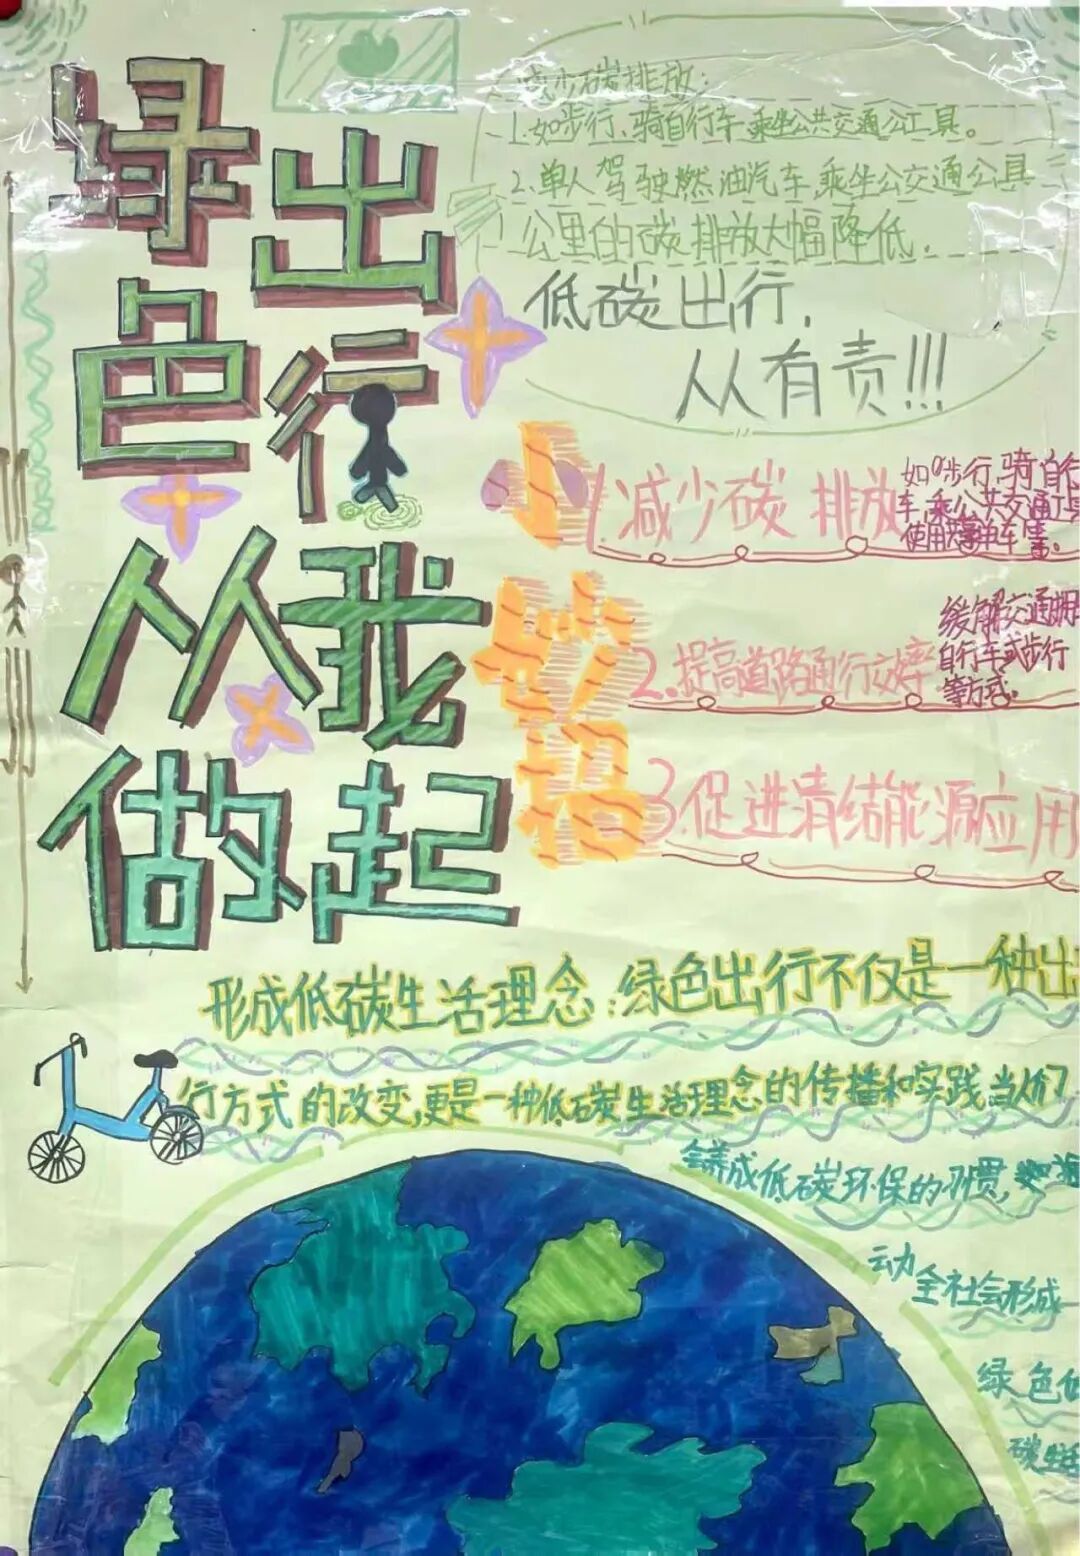 绿色出行
从我
做起
减少碳排放:
1.如步行、骑自行车、乘坐公共交通公工具。
2.单人驾驶燃油汽车,乘坐公交通公具
公里的碳排放大幅降低.
低碳出行,
从有责!!!
小妙招
1.减少碳排放
如步行,骑自行
车,乘公共交通工具
使用共享单车等。
2.提高道路通行效率
缓解交通拥
自行车或步行
等方式。
3.促进清结能源应用
形成低碳生活理念:绿色出行不仅是一种出
行方式的改变,更是一种低碳生活理念的传播和实践,当人们
会养成低碳环保的习惯,
动全社会形成一
绿色低
碳生活